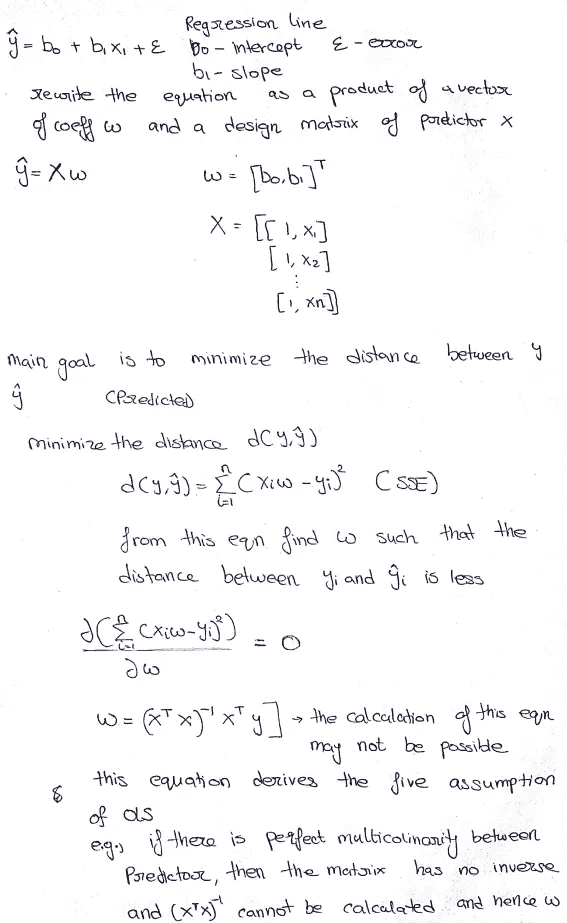 Regression line
ŷ = b₀ + b₁x₁ + ε   b₀ - intercept   ε - error
b₁ - slope
rewrite the equation as a product of a vector
of coeff ω and a design matrix of predictor x
ŷ = Xω   ω = [b₀, b₁]ᵀ
X = [[1, x₁]
[1, x₂]
⋮
[1, xn]]
main goal is to minimize the distance between y
ŷ (Predicted)
minimize the distance d(y,ŷ)
d(y,ŷ) = Σⁿᵢ₌₁ (xᵢω - yᵢ)² (SSE)
from this eqn find ω such that the
distance between yᵢ and ŷᵢ is less
∂(Σⁿᵢ₌₁ (xᵢω - yᵢ)²) / ∂ω = 0
ω = (xᵀx)⁻¹ xᵀy] → the calculation of this eqn
may not be possible
this equation derives the five assumption
of OLS
e.g., if there is perfect multicolinarity between
Predictor, then the matrix has no inverse
and (xᵀx)⁻¹ cannot be calculated and hence ω